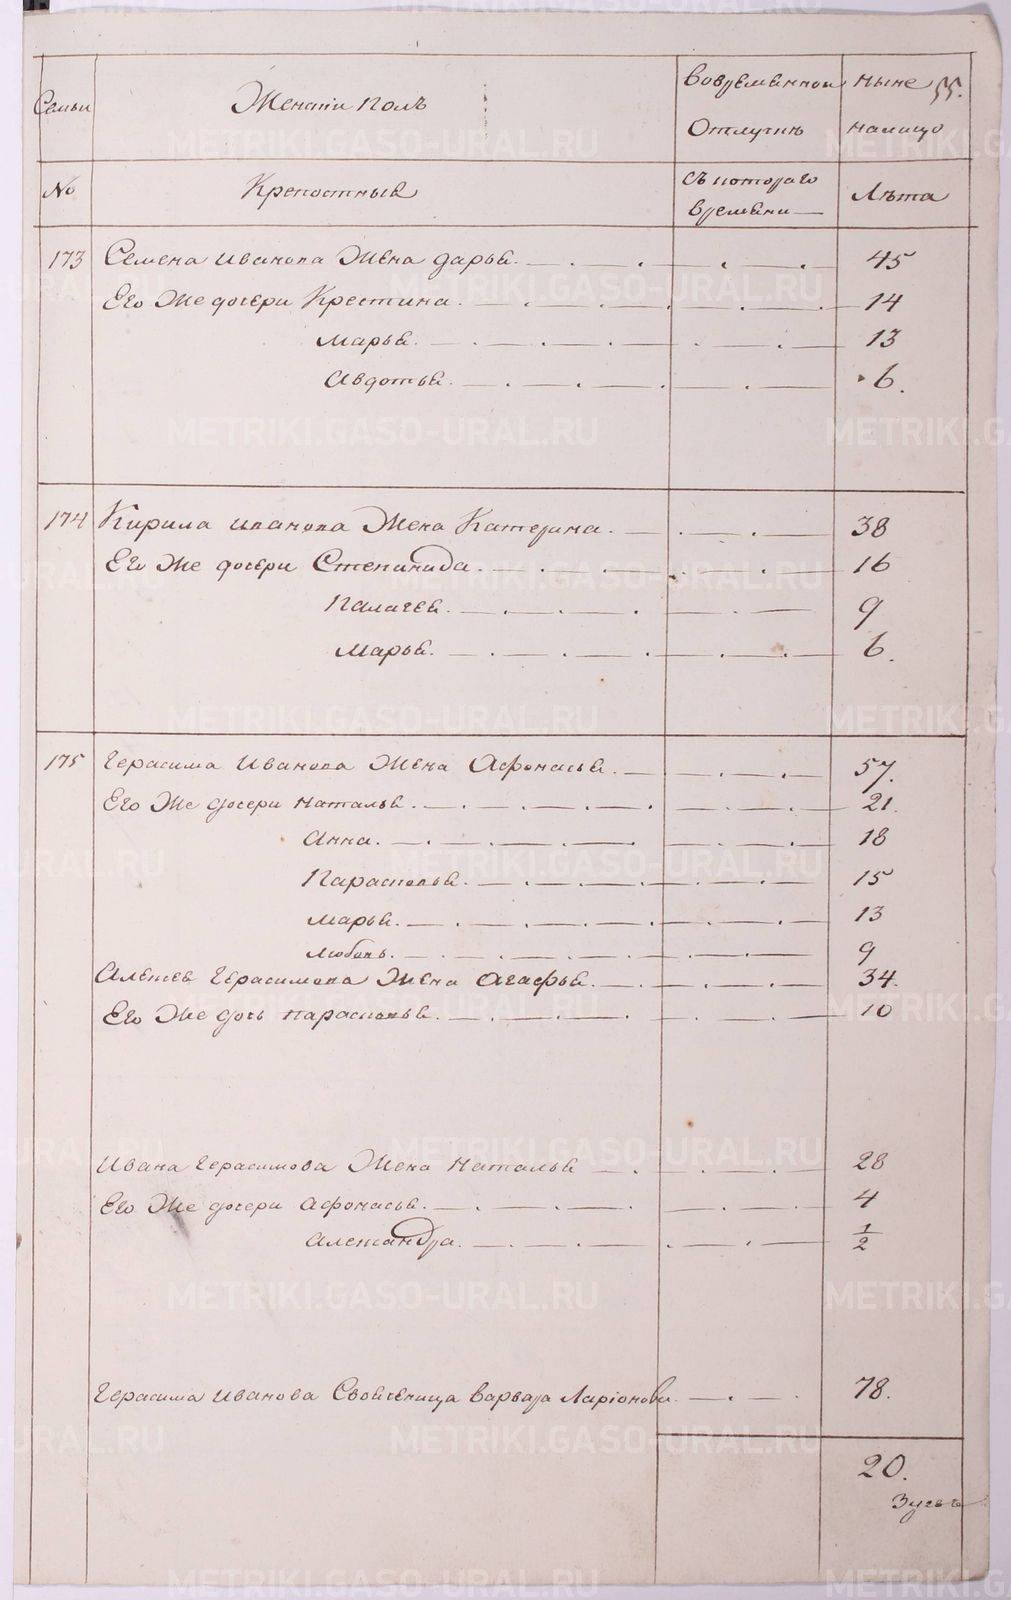 Семьи
Женскій полъ
Вовременной
Отлучкѣ
ныне
налицо
55.
№
Крепостныя
Съ котораго
времени
Лѣта
173 Семена Иванова Жена Дарья 45
Его Же дочери Крестина 14
Марья 13
Авдотья 6.
174 Кирила Иванова Жена Катерина 38
Его Же дочери Степанида 16
Палагея 9
Марья 6.
175 Герасима Иванова Жена Афонасья 57.
Его Же дочери Наталья 21.
Анна 18
Парасковья 15
Марья 13
Любовь 9
Алексея Герасимова Жена Агафья 34.
Его Же дочь Парасковья 10
Ивана Герасимова Жена Наталья 28
Его Же дочери Афонасья 4
Александра 1/2
Герасима Иванова Свойченица Варвара Ларіонова 78.
20.
METRIKI.GASO-URAL.RU